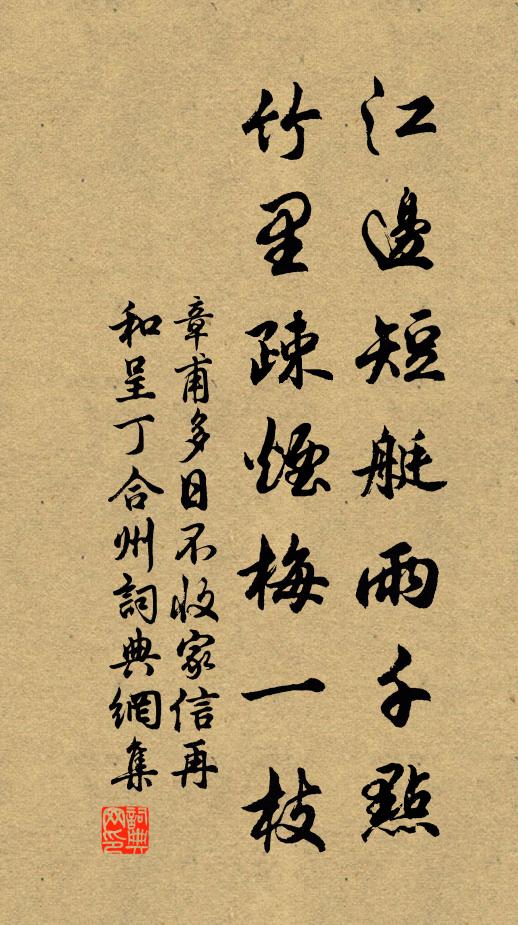 江邊短艇雨千點
竹里疎煙梅一枝
章甫多日不收家信再
和呈丁合州詞典網集
詞典網印